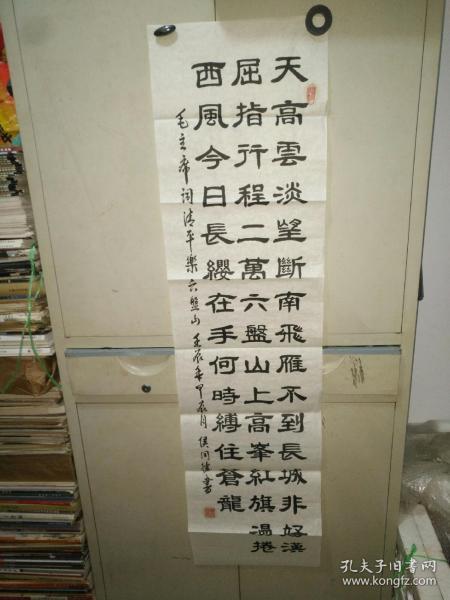 天高雲淡望斷南飛雁不到長城非好漢
屈指行程二萬六盤山上高峯紅旗漫捲
西風今日長纓在手何時縛住蒼龍
毛主席词清平樂六盤山 壬辰年甲辰月 侯書
孔夫子旧书网
www.kongfz.com